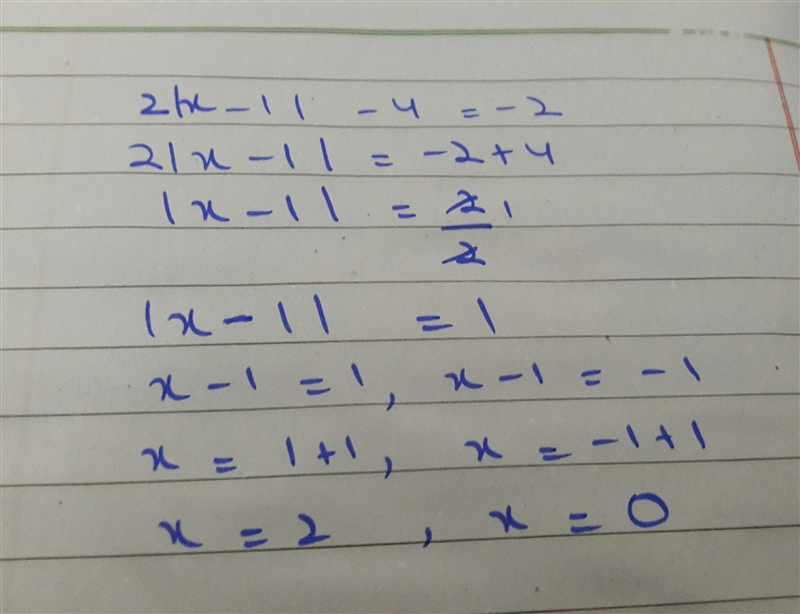 2|x - 1| - 4 = - 2
2|x - 1| = - 2 + 4
|x - 1| = 2/2 1
|x - 1| = 1
x - 1 = 1, x - 1 = - 1
x = 1 + 1, x = - 1 + 1
x = 2, x = 0